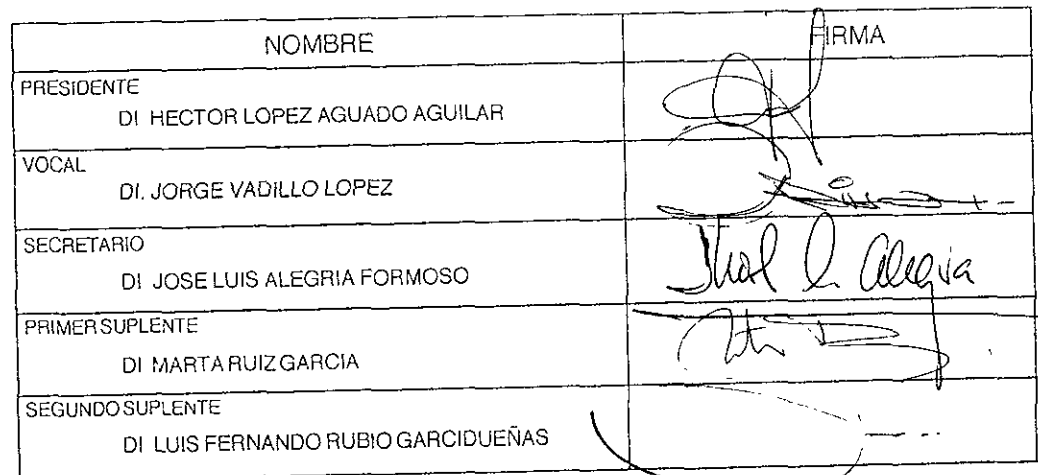 NOMBRE FIRMA
PRESIDENTE
DI HECTOR LOPEZ AGUADO AGUILAR
VOCAL
DI. JORGE VADILLO LOPEZ
SECRETARIO
DI JOSE LUIS ALEGRIA FORMOSO
PRIMER SUPLENTE
DI MARTA RUIZ GARCIA
SEGUNDO SUPLENTE
DI LUIS FERNANDO RUBIO GARCIDUEÑAS